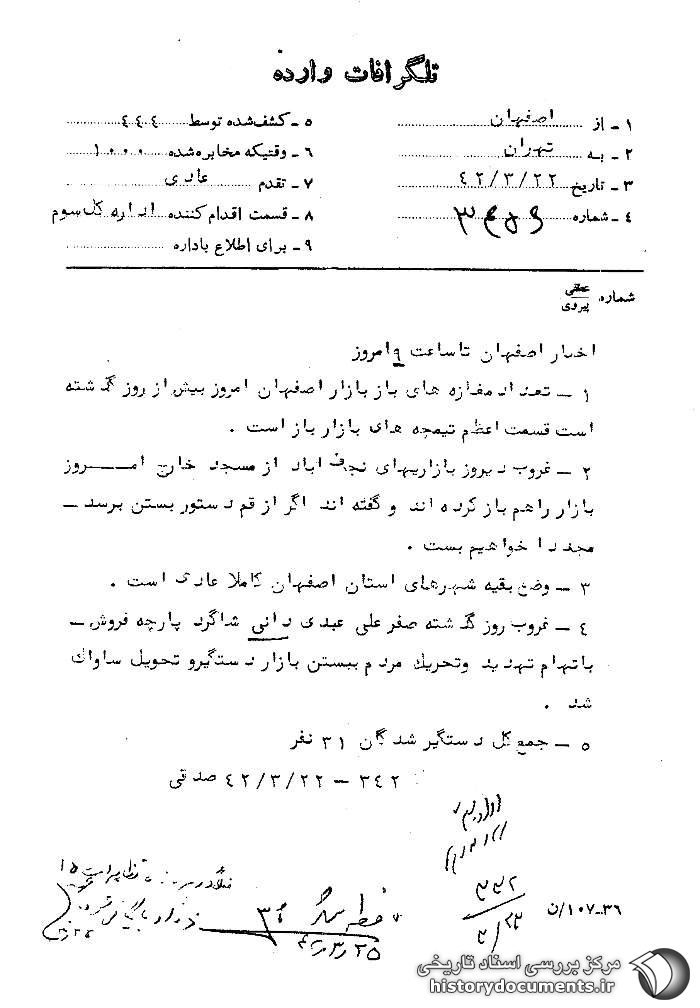 تلگرافات وارده
۱ - از اصفهان
۲ - به تهران
۳ - تاریخ ۴۲/۳/۲۲
۴ - شماره
۵ - کشف شده توسط ۴۴۴
۶ - وقتیکه مخابره شده ۱۰۰۰
۷ - تقدم عادی
۸ - قسمت اقدام کننده اداره کل سوم
۹ - برای اطلاع باداره
شماره عطفی پیروی
اخبار اصفهان تا ساعت ۹ امروز
۱ - تعداد مغازه های باز بازار اصفهان امروز بیش از روز گذشته
است قسمت اعظم تیمچه های بازار باز است .
۲ - غروب دیروز بازاریهای نجف اباد از مسجد خارج امروز
بازار را هم باز کرده اند و گفته اند اگر از قم دستور بستن برسد -
مجددا خواهیم بست .
۳ - وضع بقیه شهرهای استان اصفهان کاملا عادی است .
۴ - غروب روز گذشته صفر علی عبدی دانی شاگرد پارچه فروش -
باتهام تهدید وتحریك مردم ببستن بازار دستگیرو تحویل ساواك
شد .
۵ - جمع کل دستگیر شدگان ۳۱ نفر
۳۴۲ - ۴۲/۳/۲۲ صدقی
۳۶-۱۰۷/ن
مرکز بررسی اسناد تاریخی
historydocuments.ir